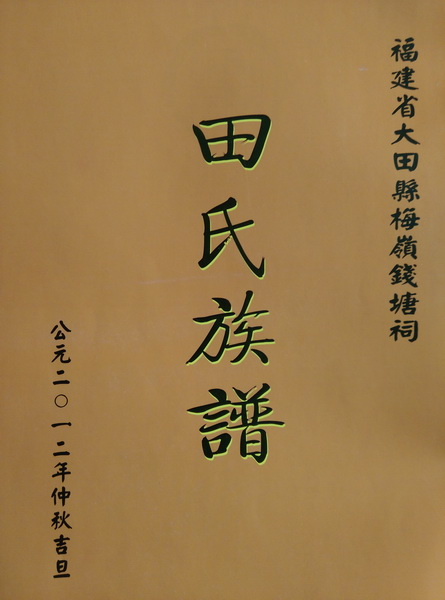 福建省大田縣梅嶺錢塘祠
田氏族譜
公元二〇一二年仲秋吉旦